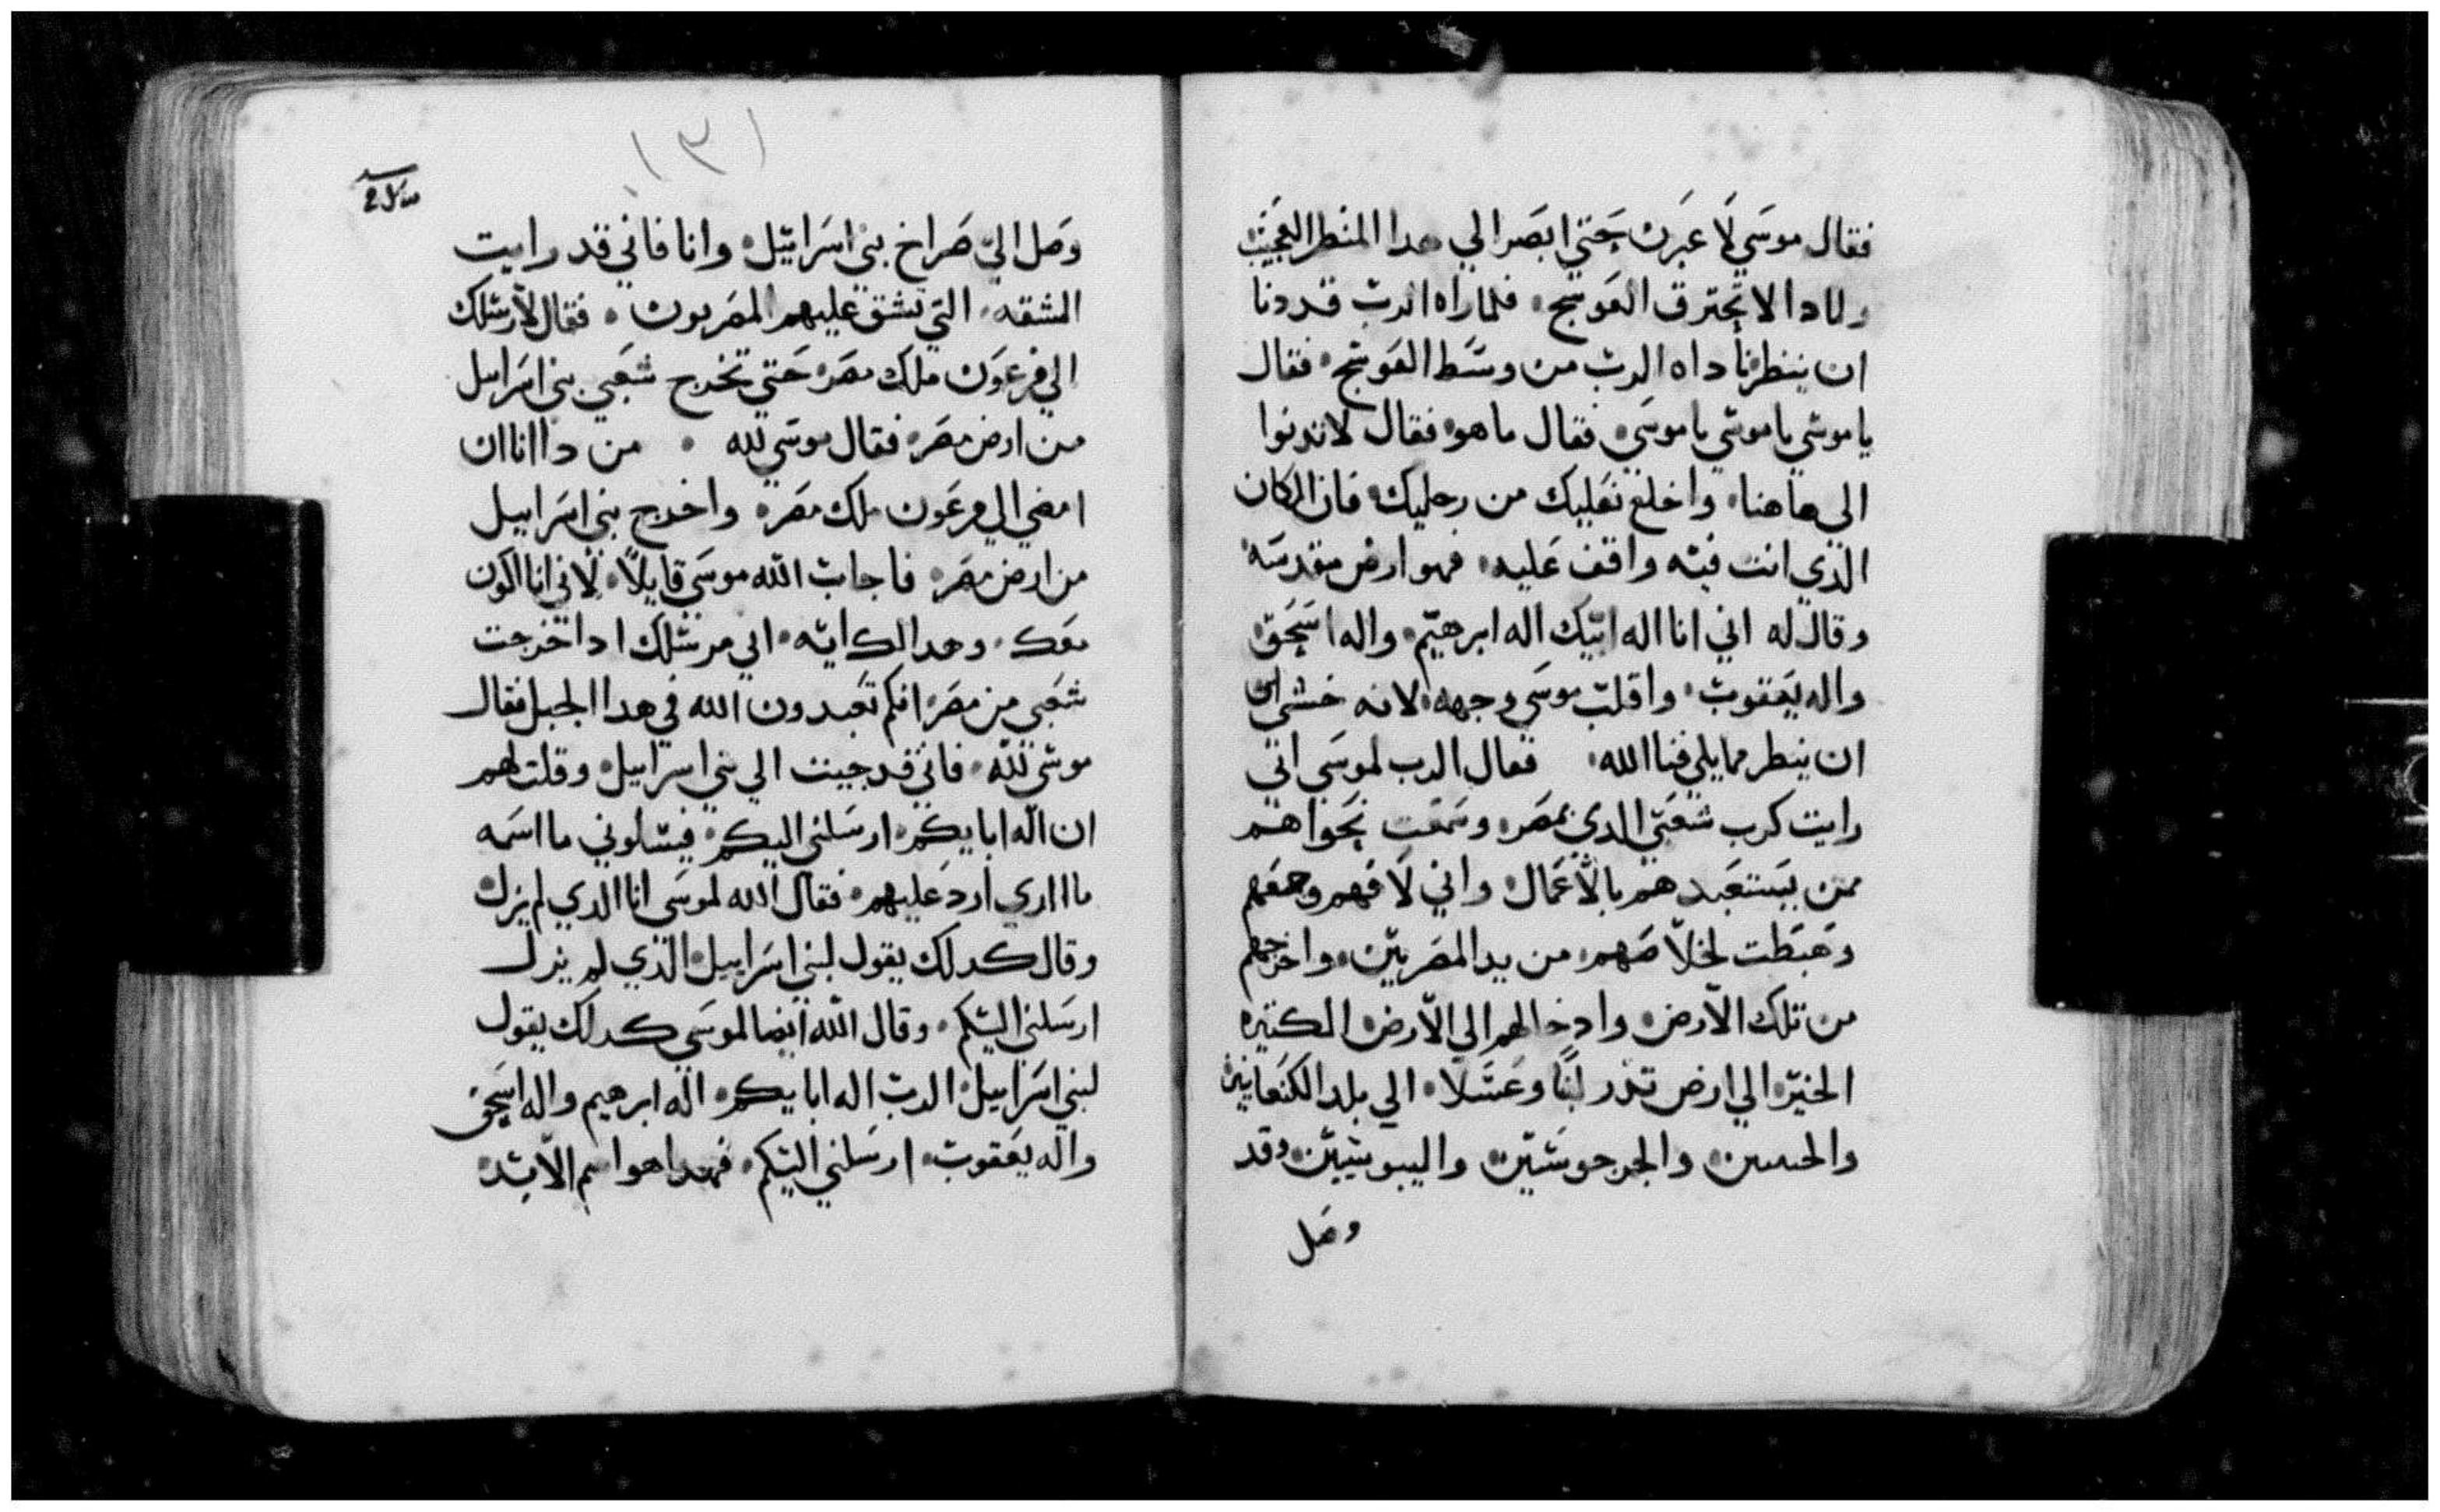 فقال موسي لا عبرن حتي ابصر الي هدا المنطر العجيب
ولمادا لا تحترق العوسج فلما راه الرب قد دنا
ان ينطر ناداه الرب من وسط العوسج فقال
يا موسي يا موسي يا موسي فقال ما هو فقال لا تدنوا
الى هاهنا واخلع نعليك من رجليك فان المكان
الدي انت فيه واقف عليه فهو ارض مقدسة
وقال له اني انا اله ابيك اله ابرهيم واله اسحق
واله يعقوب واقلب موسي وجهه لانه خشي ان
ان ينطر مما يلي الله فقال الرب لموسي اني
رايت كرب شعبي الدي بمصر وسمعت نجواهم
ممن يستعبدهم بالاعمال واني لافهم وجعهم
وهبطت لخلاصهم من يد المصريين واخرجهم
من تلك الارض وادخالهم الي الارض الكتيره
الخير الي ارض تدر لبنا وعسلا الي بلد الكنعانيين
والحيتيين والجرجوسيين واليبوسيين وقد
وصل
١٣١
وصل الي صراخ بني اسراييل وانا فاني قد رايت
المشقه التي تشق عليهم المصريون فقال لارسلك
الي فرعون ملك مصر حتي تخرج شعبي بني اسراييل
من ارض مصر فقال موسي لله من دا انا ان
امضي الي فرعون ملك مصر واخرج بني اسراييل
من ارض مصر فاجاب الله موسي قايلا لاني انا اكون
معك وهدا لك ايه اني مرسلك ادا اخرجت
شعبي من مصر انكم تعبدون الله في هدا الجبل فقال
موسي لله فاني قد جيت الي بني اسراييل وقلت لهم
ان اله ابايكم ارسلني اليكم فيسلوني ما اسمه
ما ادري ارد عليهم فقال الله لموسي انا الدي لم يزل
وقال كدلك يقول لبني اسراييل الدي لم يزل
ارسلني اليكم وقال الله ايضا لموسي كدلك يقول
لبني اسراييل الرب اله ابايكم اله ابرهيم واله اسحق
واله يعقوب ارسلني اليكم فهدا هو اسم الابد